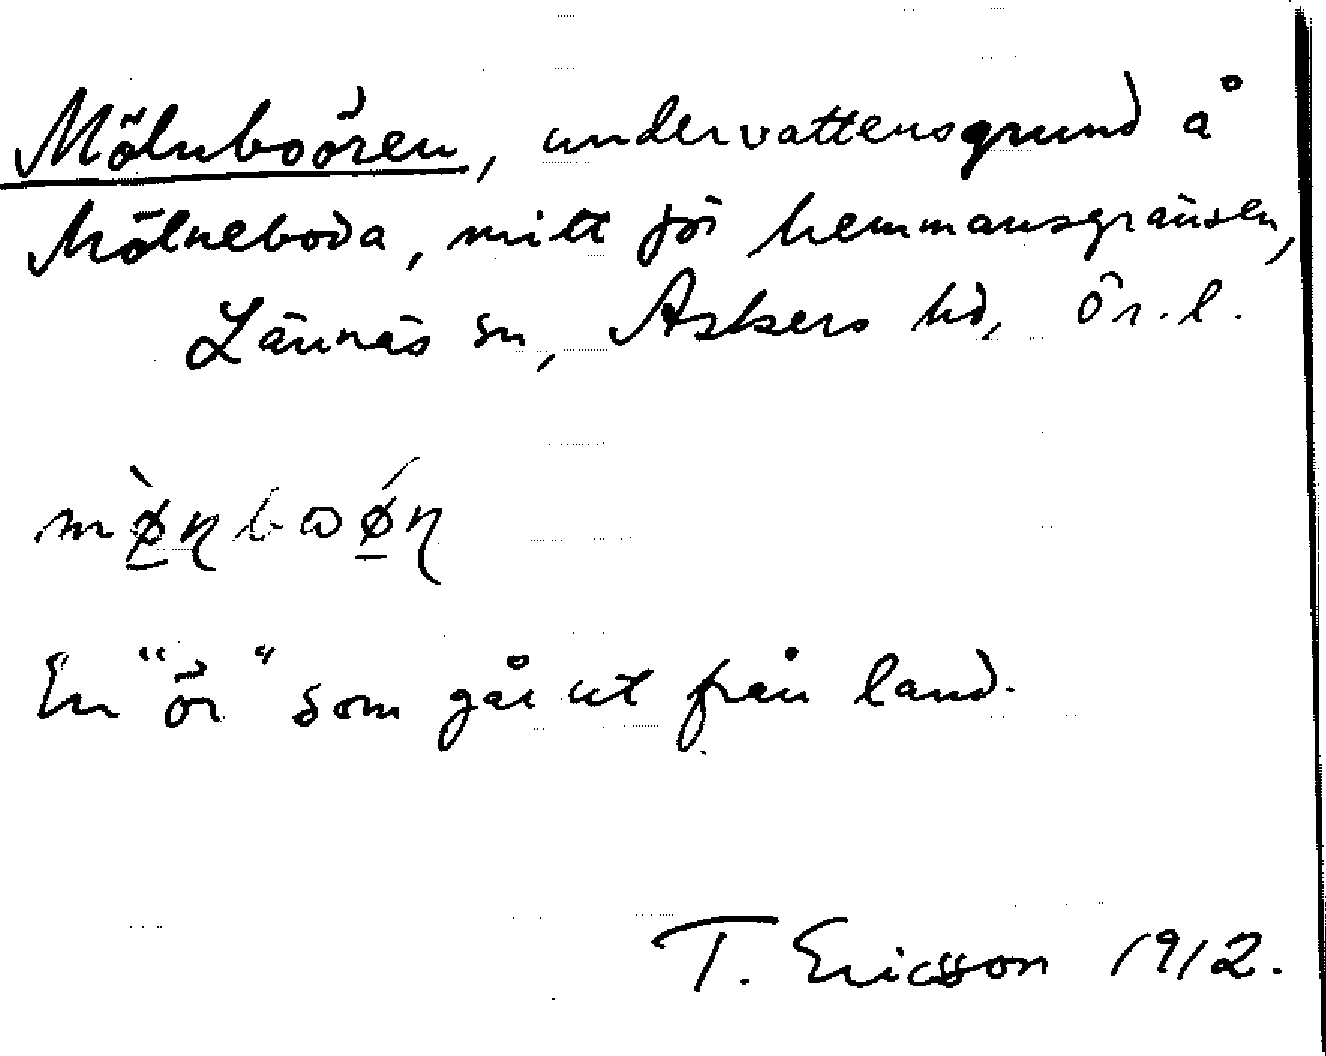 Mölnboören, undervattensgrund å
Mölneboda, mitt för hemmansgränsen,
Lännäs sn, Askers hd, Ör. l.
mø̱̀ŋbωǿ̱ŋ
En "ör" som går ut från land.
T. Ericsson 1912.